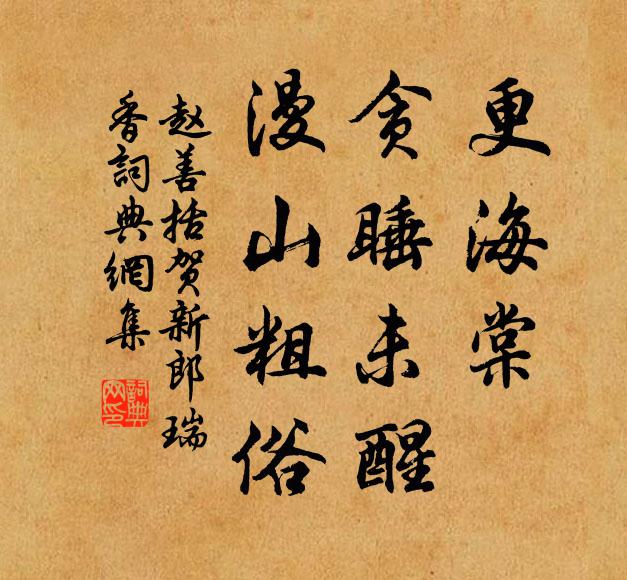 更海棠
貪睡未醒
漫山粗俗
赵善括贺新郎瑞
香詞典網集
詞典
网印